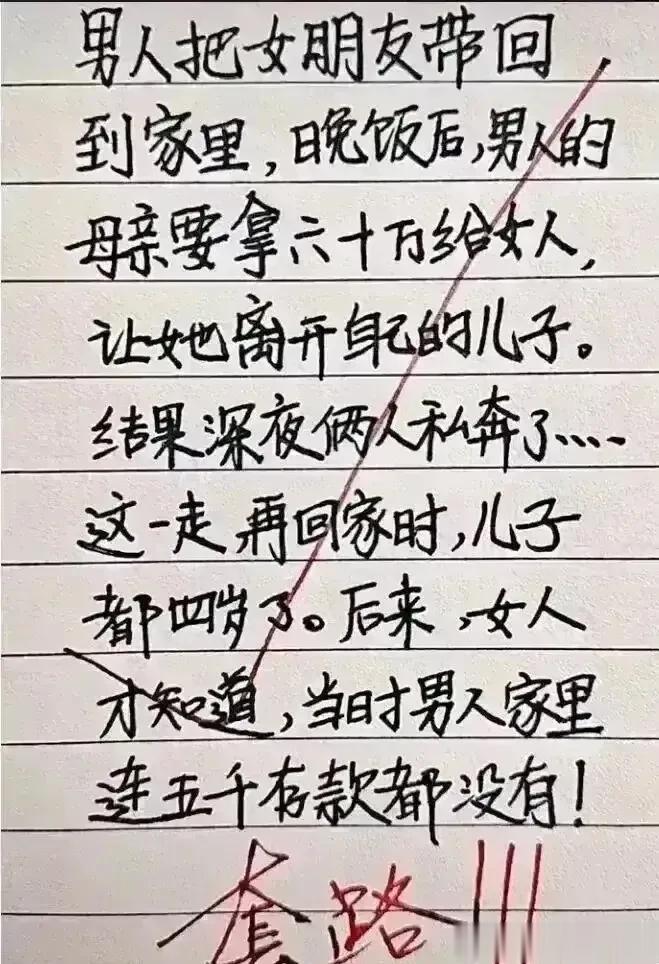 男人把女朋友带回
到家里,晚饭后,男人的
母亲要拿六十万给女人,
让她离开自己的儿子。
结果深夜俩人私奔了....
这一走再回家时,儿子
都四岁了。后来,女人
才知道,当时男人家里
连五千存款都没有!
套路!!!